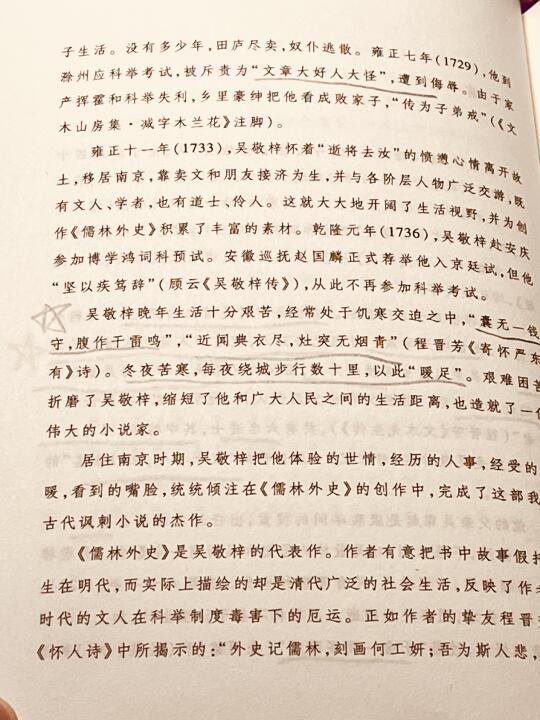 子生活。没有多少年，田庐尽卖，奴仆逃散。雍正七年(1729)，他到
滁州应科举考试，被斥责为“文章大好人大怪”，遭到侮辱。由于家
产挥霍和科举失利，乡里豪绅把他看成败家子，“传为子弟戒”(《文
木山房集·减字木兰花》注脚)。
雍正十一年(1733)，吴敬梓怀着“逝将去汝”的愤懑心情离开故
土，移居南京，靠卖文和朋友接济为生，并与各阶层人物广泛交游，既
有文人、学者，也有道士、伶人。这就大大地开阔了生活视野，并为创
作《儒林外史》积累了丰富的素材。乾隆元年(1736)，吴敬梓赴安庆
参加博学鸿词科预试。安徽巡抚赵国麟正式荐举他入京廷试，但他
“坚以疾笃辞”(顾云《吴敬梓传》)，从此不再参加科举考试。
吴敬梓晚年生活十分艰苦，经常处于饥寒交迫之中，“囊无一钱
守，腹作千雷鸣”，“近闻典衣尽，灶突无烟青”(程晋芳《寄怀严东
有》诗)。冬夜苦寒，每夜绕城步行数十里，以此“暖足”。艰难困苦
折磨了吴敬梓，缩短了他和广大人民之间的生活距离，也造就了一
伟大的小说家。
居住南京时期，吴敬梓把他体验的世情，经历的人事，经受的
暖，看到的嘴脸，统统倾注在《儒林外史》的创作中，完成了这部我
古代讽刺小说的杰作。
《儒林外史》是吴敬梓的代表作。作者有意把书中故事假托
生在明代，而实际上描绘的却是清代广泛的社会生活，反映了作者
时代的文人在科举制度毒害下的厄运。正如作者的挚友程晋
《怀人诗》中所揭示的：“外史记儒林，刻画何工妍；吾为斯人悲，